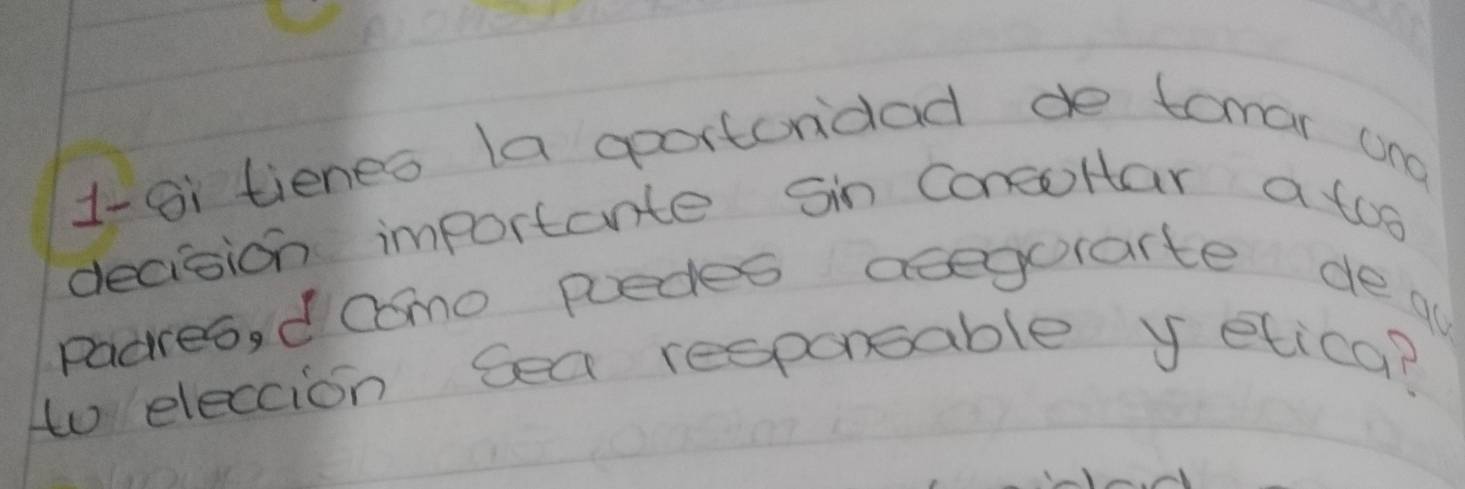 1- Si tienes la aportunidad de tomar una
decisión importante sin consultar a tus
padres, ¿ Cómo puedes asegurarte de qu
tu elección sea responsable y etica?